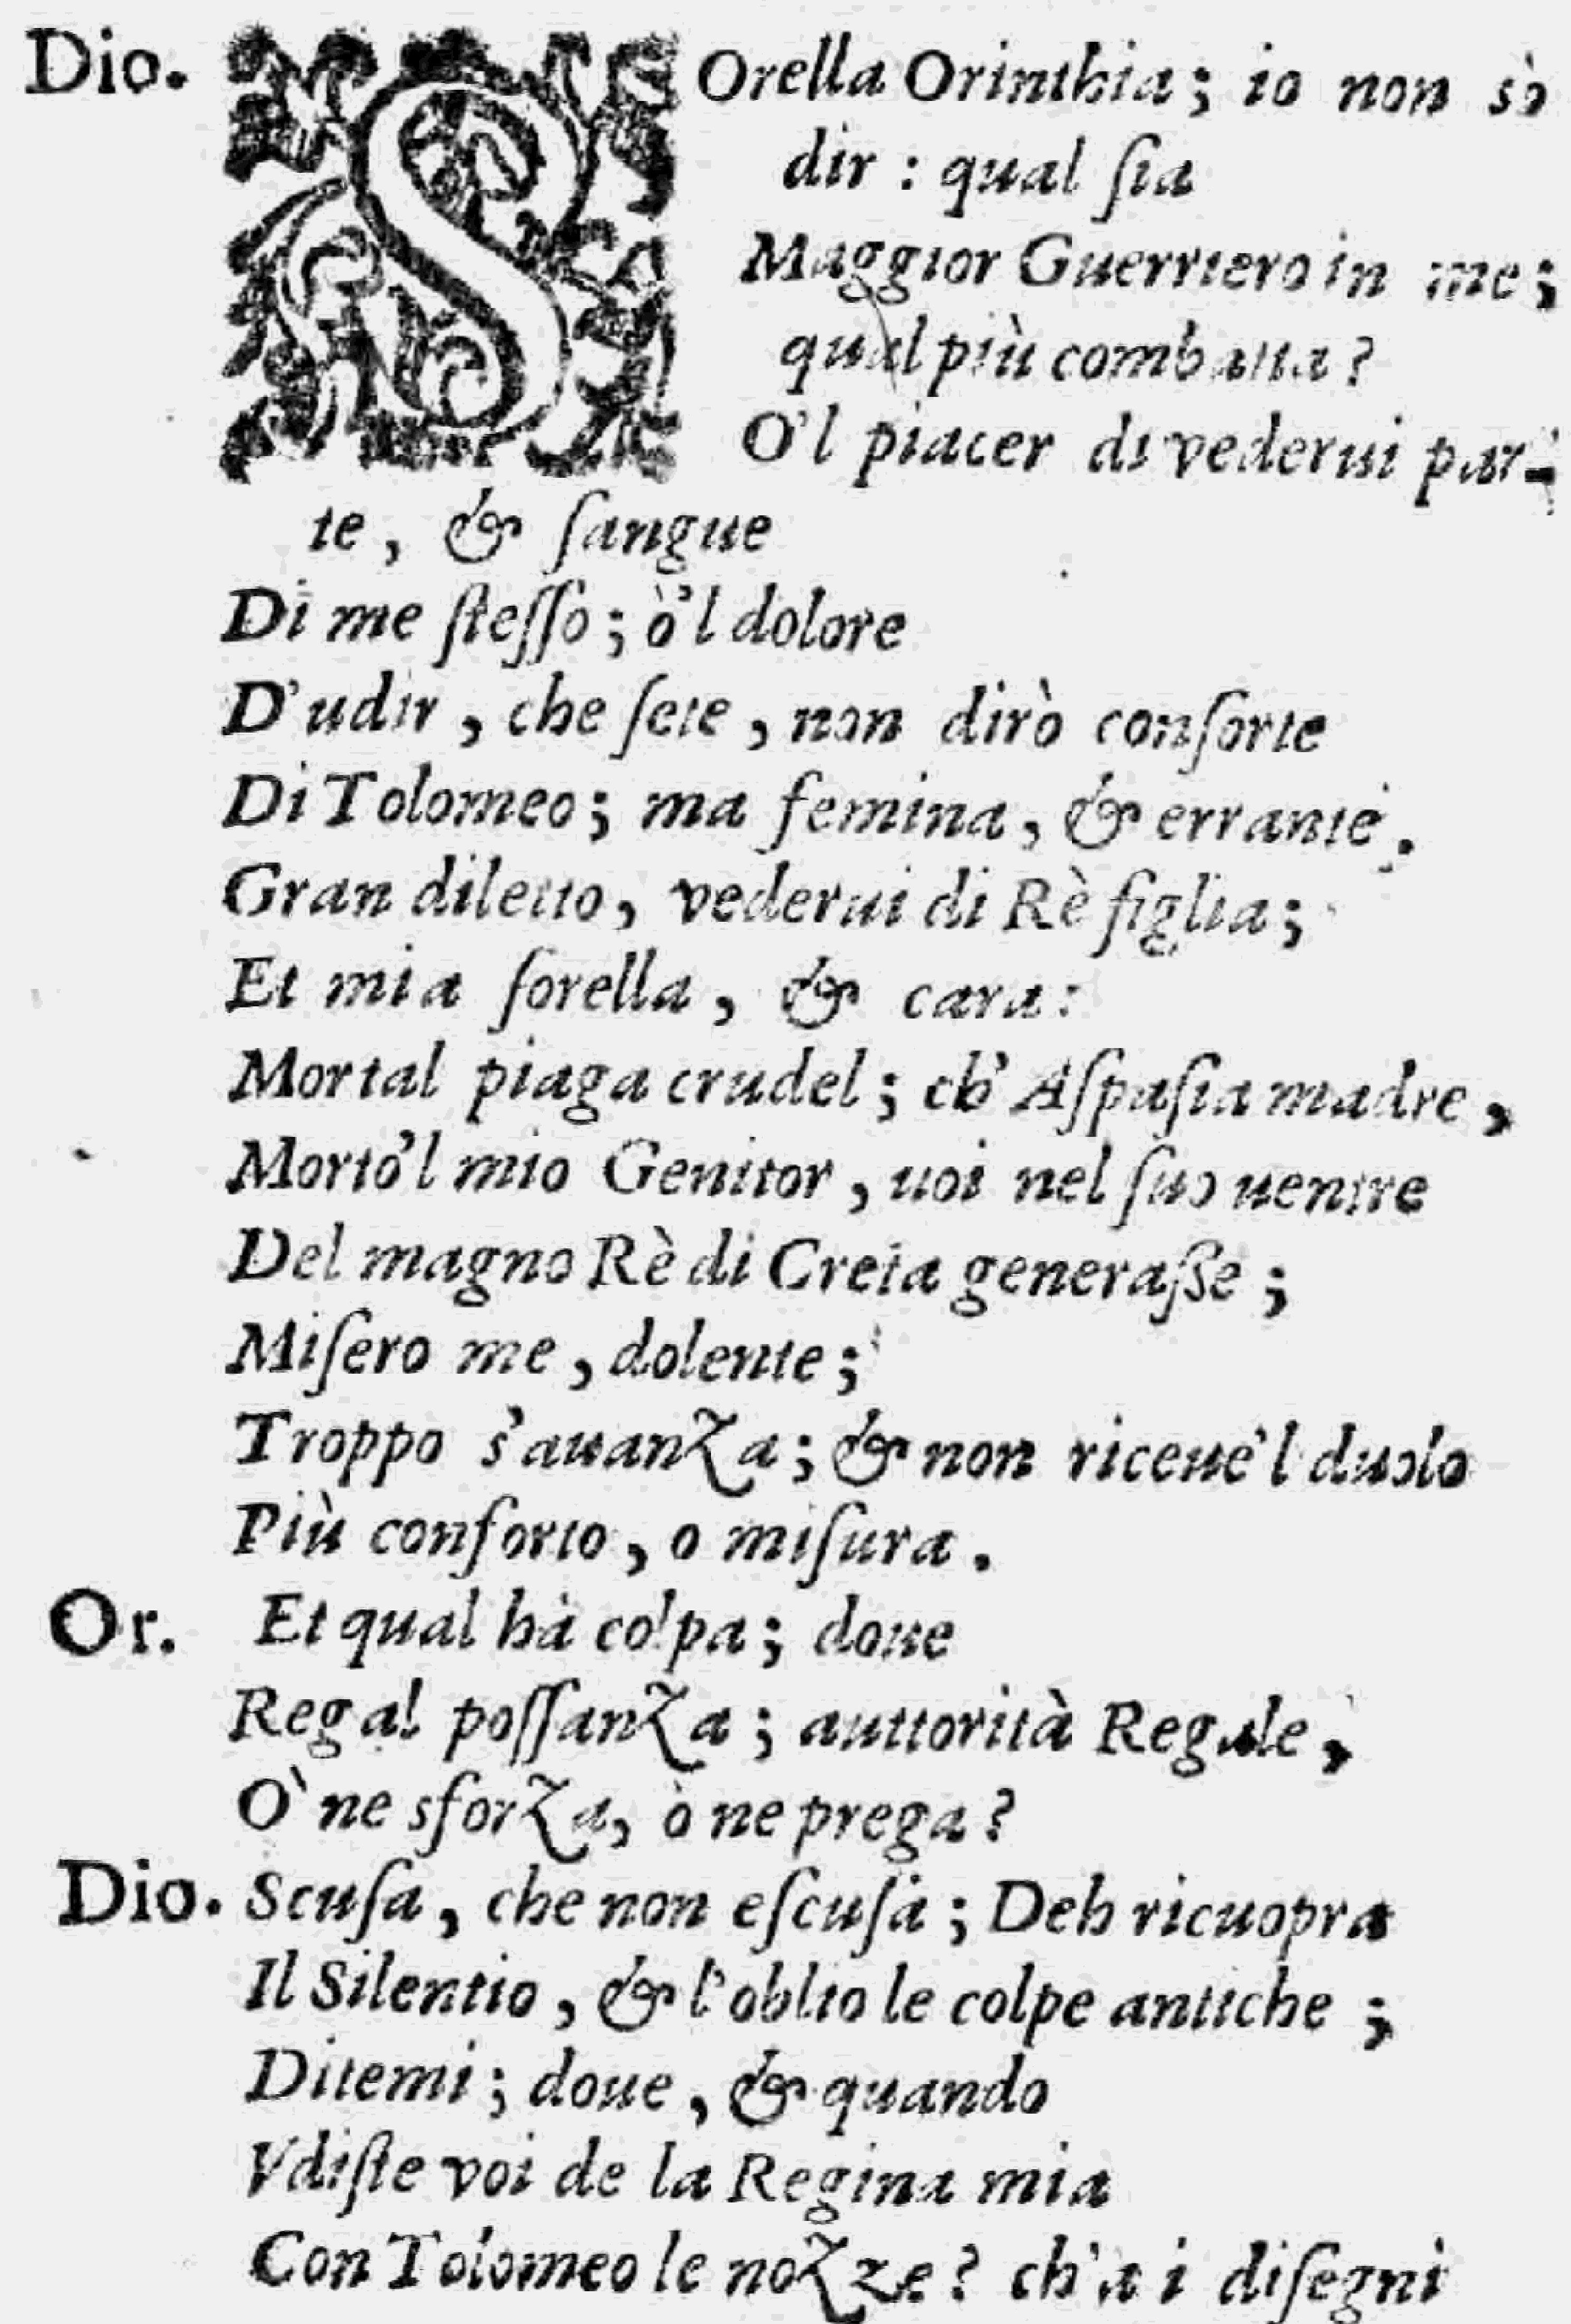 Dio. SOrella Orinthia; io non sò
dir : qual ſia
Maggior Guerriero in me;
qual più combatta?
O'l piacer di vederui par-
te, & ſangue
Di me ſteſſo; ò'l dolore
D'udir, che ſete, non dirò conſorte
Di Tolomeo; ma femina, & errante.
Gran diletto, vederui di Rè figlia;
Et mia ſorella, & cara:
Mortal piaga crudel; ch' Aſpaſia madre,
Morto'l mio Genitor, uoi nel ſuo uentre
Del magno Rè di Creta generaſſe;
Miſero me, dolente;
Troppo s'auanza; & non riceue'l duolo
Più conforto, o miſura.
Or. Et qual hà colpa; doue
Regal poſſanza; auttorità Regale,
O' ne sforza, ò ne prega?
Dio. Scuſa, che non eſcuſa; Deh ricuopra
Il Silentio, & l'oblio le colpe antiche;
Ditemi; doue, & quando
Vdiſte voi de la Regina mia
Con Tolomeo le nozze? ch'a i diſegni